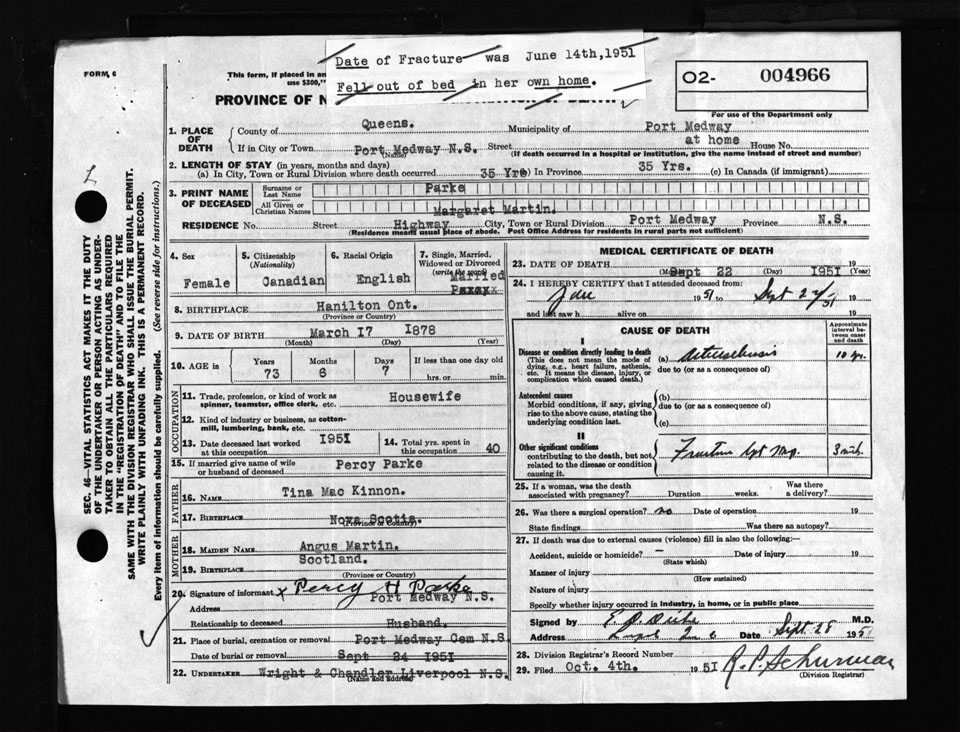 Date of Fracture was June 14th,1951
Fell out of bed in her own home.
FORM 6
This form, if placed in an
use $300,"
PROVINCE OF N
O2- 004966
For use of the Department only
1. PLACE OF DEATH
County of Queens. Municipality of Port Medway
If in City or Town Port Medway N.S. Street at home House No.
(Name) (If death occurred in a hospital or institution, give the name instead of street and number)
2. LENGTH OF STAY (in years, months and days)
(a) In City, Town or Rural Division where death occurred 35 Yrs (b) In Province 35 Yrs. (c) In Canada (if immigrant)
3. PRINT NAME OF DECEASED
Surname or Last Name Parke
All Given or Christian Names Margaret Martin.
RESIDENCE No. Street Highway City, Town or Rural Division Port Medway Province N.S.
(Residence means usual place of abode. Post Office Address for residents in rural parts not sufficient)
4. Sex Female
5. Citizenship (Nationality) Canadian
6. Racial Origin English
7. Single, Married, Widowed or Divorced (write the word) Married
8. BIRTHPLACE Hanilton Ont.
(Province or Country)
9. DATE OF BIRTH March I7 I878
(Month) (Day) (Year)
10. AGE in Years 73 Months 6 Days 7 If less than one day old hrs. or min.
OCCUPATION
11. Trade, profession, or kind of work as spinner, teamster, office clerk, etc. Housewife
12. Kind of industry or business, as cotton-mill, lumbering, bank, etc.
13. Date deceased last worked at this occupation I95I
14. Total yrs. spent in this occupation 40
15. If married give name of wife or husband of deceased Percy Parke
FATHER
16. NAME Tina Mac Kinnon.
17. BIRTHPLACE Nova Scotia.
(Province or Country)
MOTHER
18. MAIDEN NAME Angus Martin.
19. BIRTHPLACE Scotland.
(Province or Country)
20. Signature of informant x Percy H Parke
Address Port Medway N.S.
Relationship to deceased Husband.
21. Place of burial, cremation or removal Port Medway Cem N.S.
Date of burial or removal Sept 24 I95I
22. UNDERTAKER Wright & Chandler Liverpool N.S.
(Name and address)
MEDICAL CERTIFICATE OF DEATH
23. DATE OF DEATH Sept 22 I95I
(Day) (Year)
24. I HEREBY CERTIFY that I attended deceased from:
Jan 1951 to Sept 22/51 19
and last saw h alive on 19
CAUSE OF DEATH
Approximate interval between onset and death
I
Disease or condition directly leading to death
(This does not mean the mode of dying, e.g., heart failure, asthenia, etc. It means the disease, injury, or complication which caused death.)
(a) 10 yrs.
due to (or as a consequence of)
Antecedent causes
Morbid conditions, if any, giving rise to the above cause, stating the underlying condition last.
(b)
due to (or as a consequence of)
(c)
II
Other significant conditions
contributing to the death, but not related to the disease or condition causing it.
Fracture 3 mths.
25. If a woman, was the death associated with pregnancy? Duration weeks. Was there a delivery?
26. Was there a surgical operation? no Date of operation 19
State findings Was there an autopsy?
27. If death was due to external causes (violence) fill in also the following:—
Accident, suicide or homicide? — Date of injury 19
(State which)
Manner of injury
(How sustained)
Nature of injury
Specify whether injury occurred in industry, in home, or in public place
Signed by M.D.
Address Date Sept 28 1951
28. Division Registrar's Record Number
29. Filed Oct. 4th. 195I R. P. Schurman
(Division Registrar)
SEC. 46—VITAL STATISTICS ACT MAKES IT THE DUTY
OF THE UNDERTAKER OR PERSON ACTING AS UNDER-
TAKER TO OBTAIN ALL THE PARTICULARS REQUIRED
IN THE "REGISTRATION OF DEATH" AND TO FILE THE
SAME WITH THE DIVISION REGISTRAR WHO SHALL ISSUE THE BURIAL PERMIT.
WRITE PLAINLY WITH UNFADING INK. THIS IS A PERMANENT RECORD.
Every item of information should be carefully supplied. (See reverse side for instructions.)